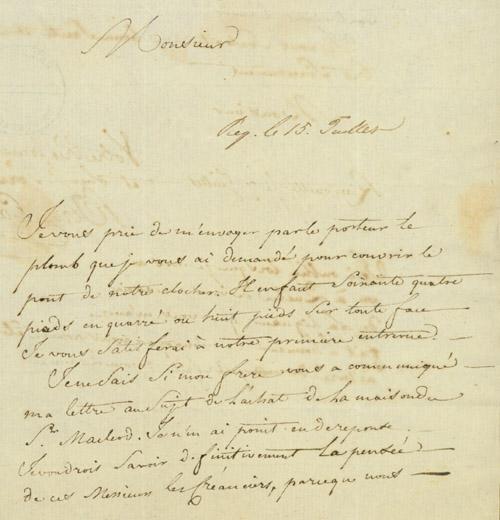 Monsieur
Reç. le 15. Juillet
Je vous prie de m'envoyer par le porteur le
plomb que je vous ai demandé pour couvrir le
pont de notre clocher. Il en faut soixante quatre
pieds en quarré ou huit pieds sur toute face
Je vous satisferai à notre première entrevue. —
Je ne sais si mon frere vous a communiqué —
ma lettre au sujet de l'achat de la maison du
Sr. Macleod. Je n'en ai point eu de reponse.
Je voudrois savoir definitivement la pensée
de ces Messieurs les Créanciers, parceque nous —